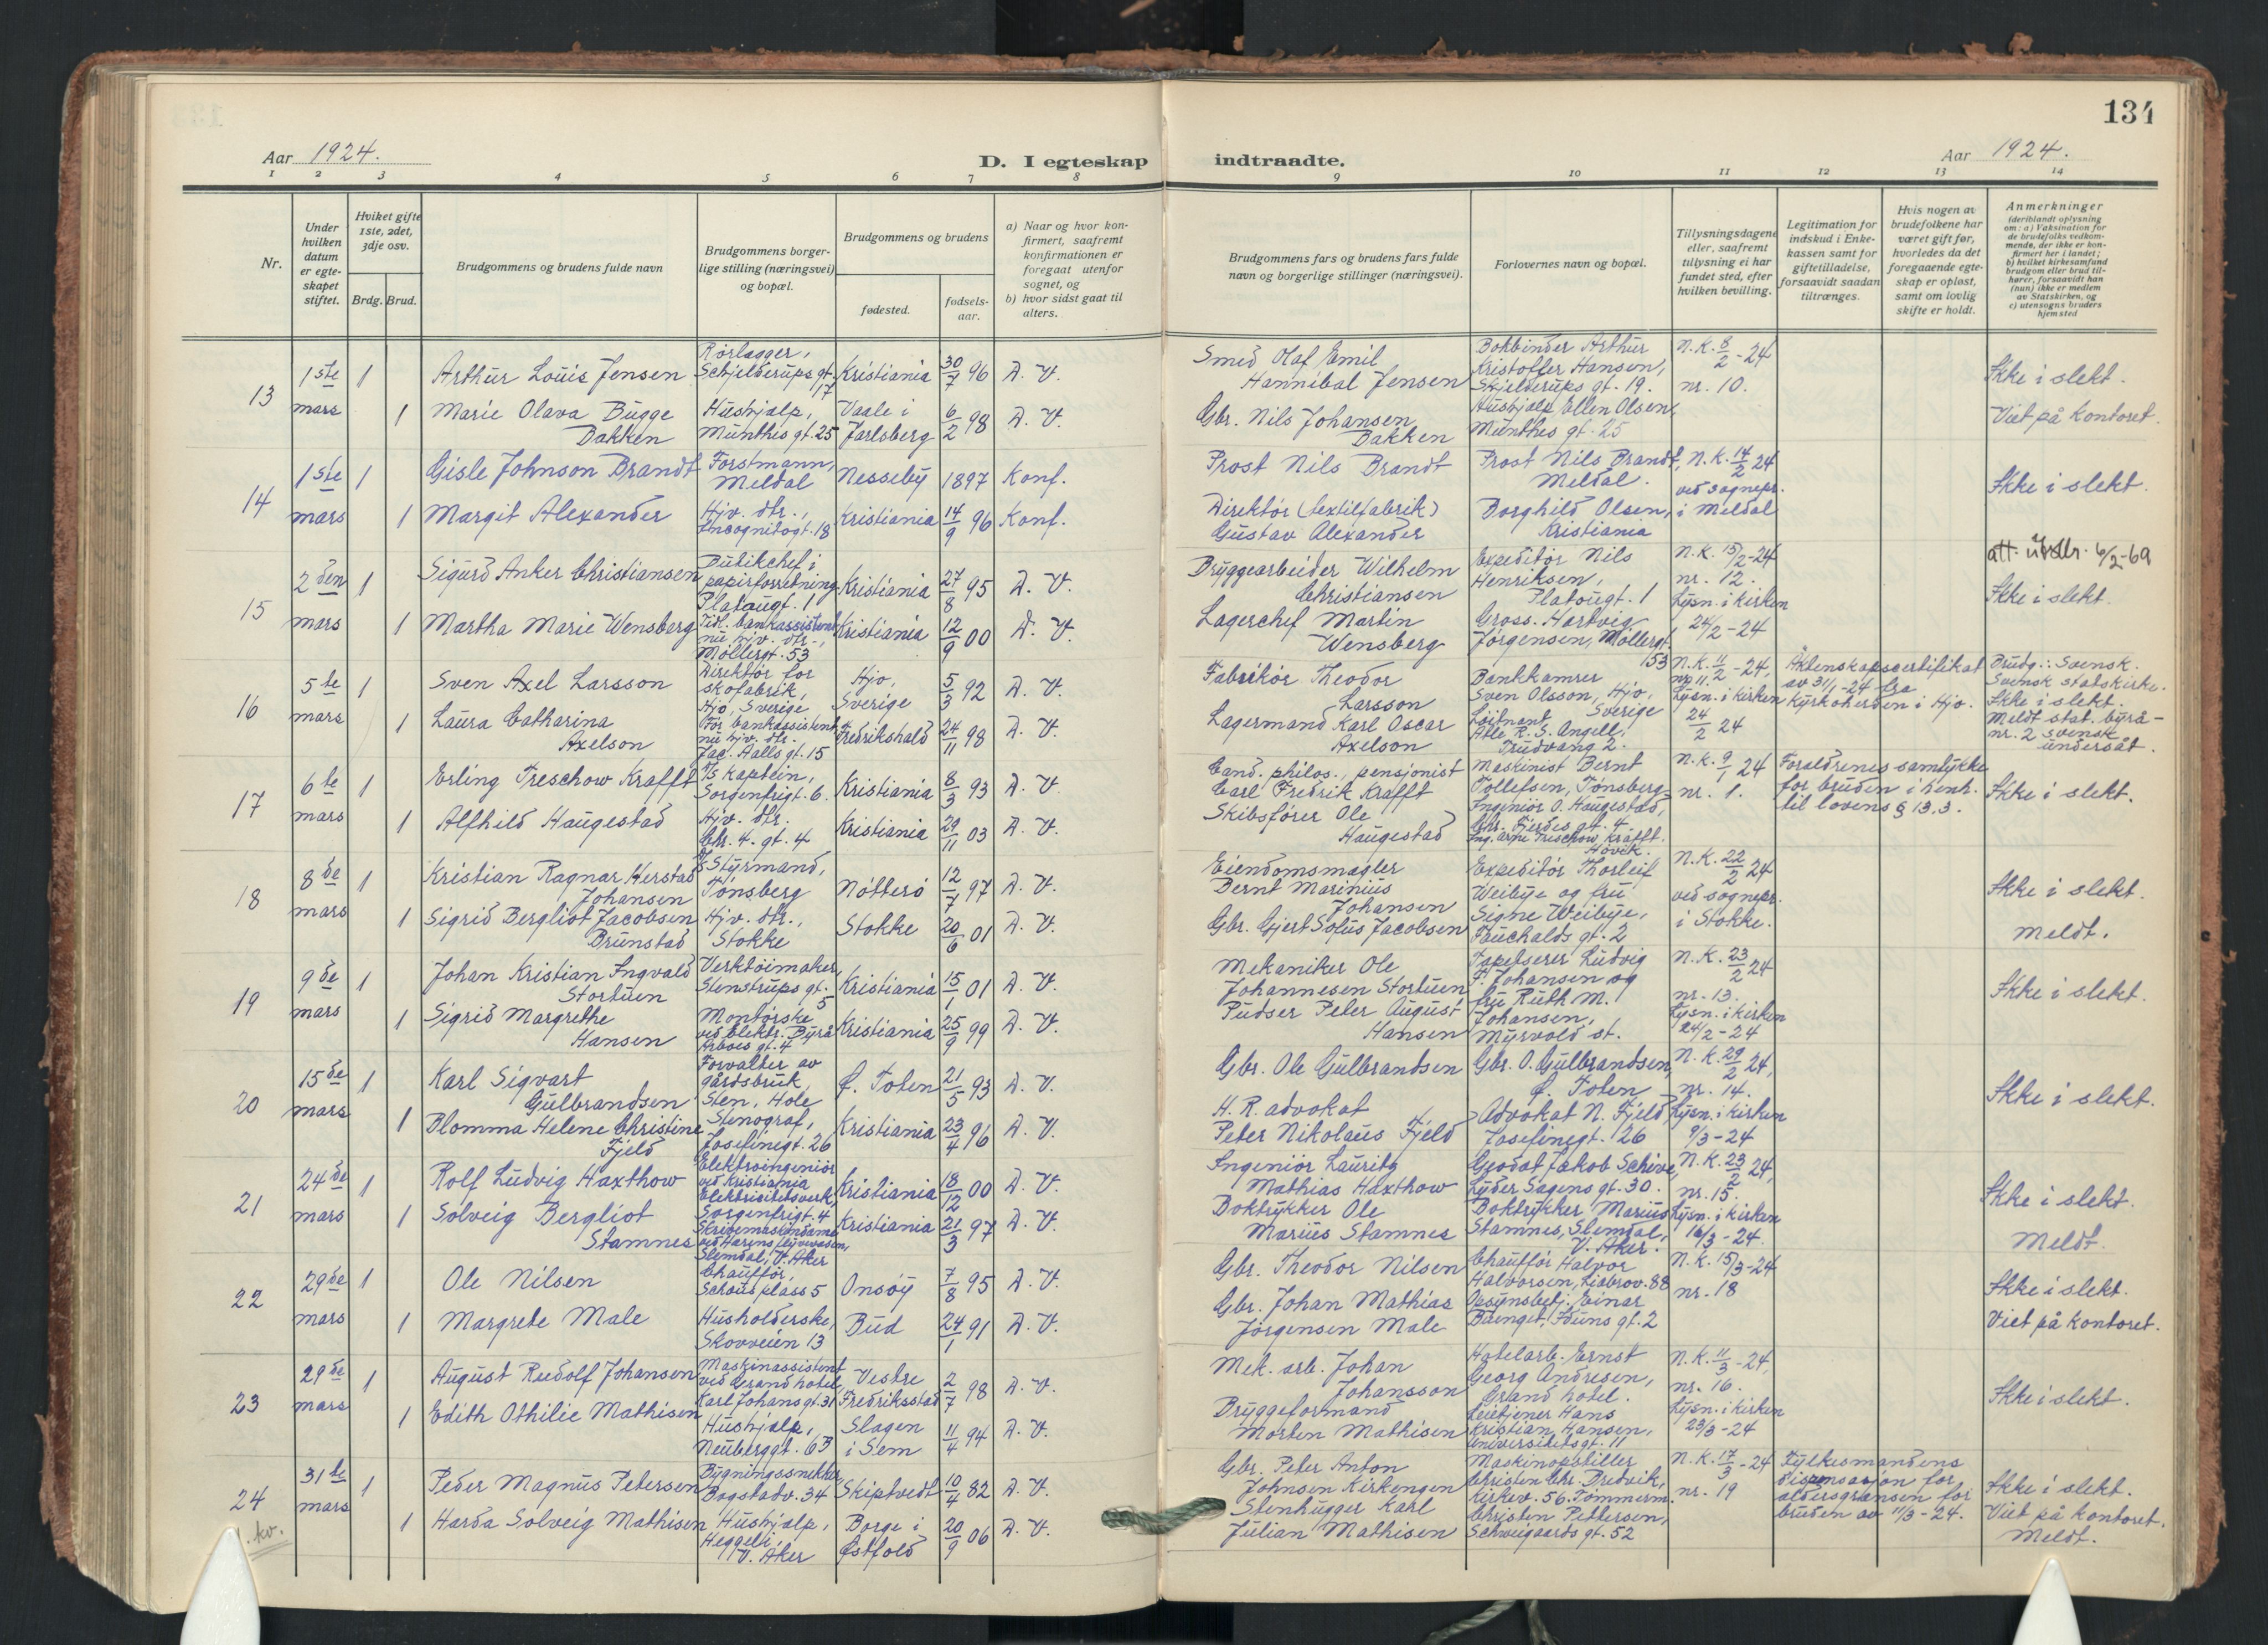 134
Aar 1924.
D. I egteskap indtraadte.
Aar 1924.
1 2 3 4 5 6 7 8 9 10 11 12 13 14
Nr.
Under hvilken datum er egteskapet stiftet.
Hviket gifte 1ste, 2det, 3dje osv.
Brdg. Brud.
Brudgommens og brudens fulde navn
Brudgommens borgerlige stilling (næringsvei) og bopæl.
Brudgommens og brudens
fødested.
fødselsaar.
a) Naar og hvor konfirmert, saafremt konfirmationen er foregaat utenfor sognet, og
b) hvor sidst gaat til alters.
Brudgommens fars og brudens fars fulde navn og borgerlige stillinger (næringsvei).
Forlovernes navn og bopæl.
Tillysningsdagene eller, saafremt tillysning ei har fundet sted, efter hvilken bevilling.
Legitimation for indskud i Enkekassen samt for giftetilladelse, forsaavidt saadan tiltrænges.
Hvis nogen av brudefolkene har været gift før, hvorledes da det foregaaende egteskap er opløst, samt om lovlig skifte er holdt.
Anmerkninger
(deriblandt oplysning om: a) Vaksination for de brudefolks vedkommende, der ikke er konfirmert her i landet; b) hvilket kirkesamfund brudgom eller brud tilhører, forsaavidt han (hun) ikke er medlem av Statskirken, og c) utensogns bruders hjemsted
13 1ste mars 1 Arthur Louis Jensen Rørlægger, Schjelderups gt. 17 Kristiania 30/7 96 D. V. Smed Olaf Emil Hannibal Jensen Bokbinder Arthur Kristoffer Hansen, Skjelderups gt. 19. N.K. 8/2-24 nr. 10. Ikke i slekt.
1 Marie Olava Bugge Bakken Hushjælp, Munthes gt. 25 Vaale i Jarlsberg 6/2 98 D. V. Gbr. Nils Johansen Bakken Hushjælp Ellen Olsen, Munthes gt. 25 Viet på kontoret.
14 1ste mars 1 Gisle Johnson Brandt Forstmann, Meldal Nesseby 1897 Konf. Prost Nils Brandt Prost Nils Brandt, Meldal. N.K. 14/2 24 ved sognepr. i Meldal Ikke i slekt.
1 Margit Alexander Hjv. dtr., Incognitogt. 18 Kristiania 14/9 96 Konf. Direktör (textilfabrik) Gustav Alexander Borghild Olsen, Kristiania
15 2den mars 1 Sigurd Anker Christiansen Butikchef i papirforretning Platougt. 1 Kristiania 27/8 95 D. V. Bryggearbeider Wilhelm Christiansen Expeditör Nils Henriksen, Platougt. 1 N.K. 15/2-24 nr. 12. Lysn. i kirken 24/2-24 att. utstr. 6/2-69 Ikke i slekt.
1 Martha Marie Wensberg Tidl. bankassistent nu hjv. dtr., Möllergt. 53 Kristiania 12/9 00 D. V. Lagerchef Martin Wensberg Gross. Hartvig Jörgensen, Möllergt. 53
16 5te mars 1 Sven Axel Larsson Direktör for skofabrik, Hjo, Sverige Hjo, Sverige 5/3 92 D. V. Fabrikör Theodor Larsson Bankkamrer Sven Olsson, Hjo, Sverige N.K. 11/2-24, nr. 11. Lysn. i kirken 24/2 24 Äktenskapscertifikat av 31/1-24 fra kyrkoherden i Hjo. Brudg.: Svensk. Svensk statskirke. Ikke i slekt. Meldt stat. byrå - nr. 2 svensk undersåt.
1 Laura Catharina Axelson För bankassistent, nu hjv. dtr. Jac. Aalls gt. 15 Fredrikshald 24/11 98 D. V. Lagermand Karl Oscar Axelson Löitnant Atle R. S. Angell, Trudvang 2.
17 6te mars 1 Erling Treschow Krafft D/S kaptein, Sorgenfrigt. 6. Kristiania 8/3 93 D. V. Cand. philos., pensjonist Carl Fredrik Krafft Maskinist Bernt Tollefsen, Tønsberg N.K. 9/1 24 nr. 1. Foreldrenes samtykke for bruden i henh. til lovens § 13,3. Ikke i slekt.
1 Alfhild Haugestad Hjv. dtr. Chr. 4. gt. 4 Kristiania 29/11 03 D. V. Skibsförer Ole Haugestad Ingeniör O. Haugestad, Chr. Fjerdes gt. 4 Ing. Arne Treschow Krafft. Hövik.
18 8de mars 1 Kristian Ragnar Herstad Johansen D/S Styrmand, Tønsberg Nötterö 12/7 97 D. V. Eiendomsmægler Bernt Marinius Johansen Expeditör Thorleif Weibye og fru Signe Weibye, Fauchalds gt. 2 N.K. 22/2 24 ved sognepr. i Stokke. Ikke i slekt.
1 Sigrid Bergliot Jacobsen Brunstad Hjv. dtr., Stokke Stokke 20/6 01 D. V. Gbr. Gjert Sofus Jacobsen Meldt.
19 9de mars 1 Johan Kristian Ingvald Stortuen Verktöimaker, Stenstrups gt. 5 Kristiania 15/1 01 D. V. Mekaniker Ole Johannesen Stortuen Tapetserer Ludvig F. Johansen og fru Ruth M. Johansen, Myrvold st. N.K. 23/2 24 nr. 13. Lysn. i kirken 24/2-24 Ikke i slekt.
1 Sigrid Margrethe Hansen Montörske ved Elektr. Byrå Arbos gt. 4 Kristiania 25/9 99 D. V. Pudser Peter August Hansen
20 15de mars 1 Karl Sigvart Gulbrandsen Forvalter av gårdsbruk, Sten, Hole Ø. Toten 21/5 93 D. V. Gbr. Ole Gulbrandsen Gbr. O. Gulbrandsen, Ø. Toten N.K. 29/2 24, nr. 14. Lysn. i kirken 9/3-24 Ikke i slekt.
1 Blomma Helene Christine Fjeld Stenograf, Josefinegt. 26 Kristiania 23/4 96 D. V. H. R. advokat Peter Nikolaus Fjeld Advokat N. Fjeld, Josefinegt. 26
21 24de mars 1 Rolf Ludvig Haxthow Elektroingeniör ved Kristiania Elektricitetsverk, Sorgenfrigt. 4 Kristiania 18/12 00 D. V. Ingeniör Lauritz Mathias Haxthow Geodat Jakob Schive, Lyder Sagens gt. 30. N.K. 23/2 24, nr. 15. Lysn. i kirken 16/3-24. Ikke i slekt.
1 Solveig Bergliot Stamnes Skrivemaskindame ved Hærens flyvevæsen, Slemdal, V. Aker Kristiania 21/3 97 D. V. Boktrykker Ole Marius Stamnes Boktrykker Marius Stamnes, Slemdal, V. Aker. Meldt.
22 29de mars 1 Ole Nilsen Chaufför, Schous plass 5 Onsöy 7/8 95 D. V. Gbr. Theodor Nilsen Chaufför Halvor Halvorsen, Liabrov. 88 N.K. 15/3-24 nr. 18 Ikke i slekt.
1 Margrete Male Husholderske, Skovveien 13 Bud 24/1 91 D. V. Gbr. Johan Mathias Jörgensen Male Opsynsbetj. Einar Baenget, Iduns gt. 2 Viet på kontoret.
23 29de mars 1 August Rudolf Johansen Maskinassistent ved Grand hotel, Karl Johans gt. 31 Vestre Fredriksstad 2/7 98 D. V. Mek. arb. Johan Johansson Hotelarb. Ernst Georg Andresen, Grand hotel. N.K. 11/3-24, nr. 16. Lysn. i kirken 23/3-24 Ikke i slekt.
1 Edith Othilie Mathisen Hushjælp, Neuberggt. 63 Slagen i Sem 11/4 94 D. V. Bryggeformand Morten Mathisen Leietjener Hans Kristian Hansen, Universitetsgt. 11
24 31te mars 1 Peder Magnus Petersen Bygningssnekker, Bogstadv. 34 Skiptvedt 10/4 82 D. V. Gbr. Peter Anton Johnsen Kirkengen Maskinopstiller Christen Chr. Bredvik, Kirkev. 56. N.K. 17/3-24 nr. 19 Fylkesmandens dispensasjon for aldersgrænsen for bruden av 11/3-24. Ikke i slekt. Viet på kontoret.
1 Harda Solveig Mathisen Hushjælp, Heggeli, V. Aker Borge i Østfold 20/9 06 D. V. Stenhugger Karl Julian Mathisen Tömmerm. Christen Pettersen, Schweigaards gt. 52 Meldt.
1. kv.